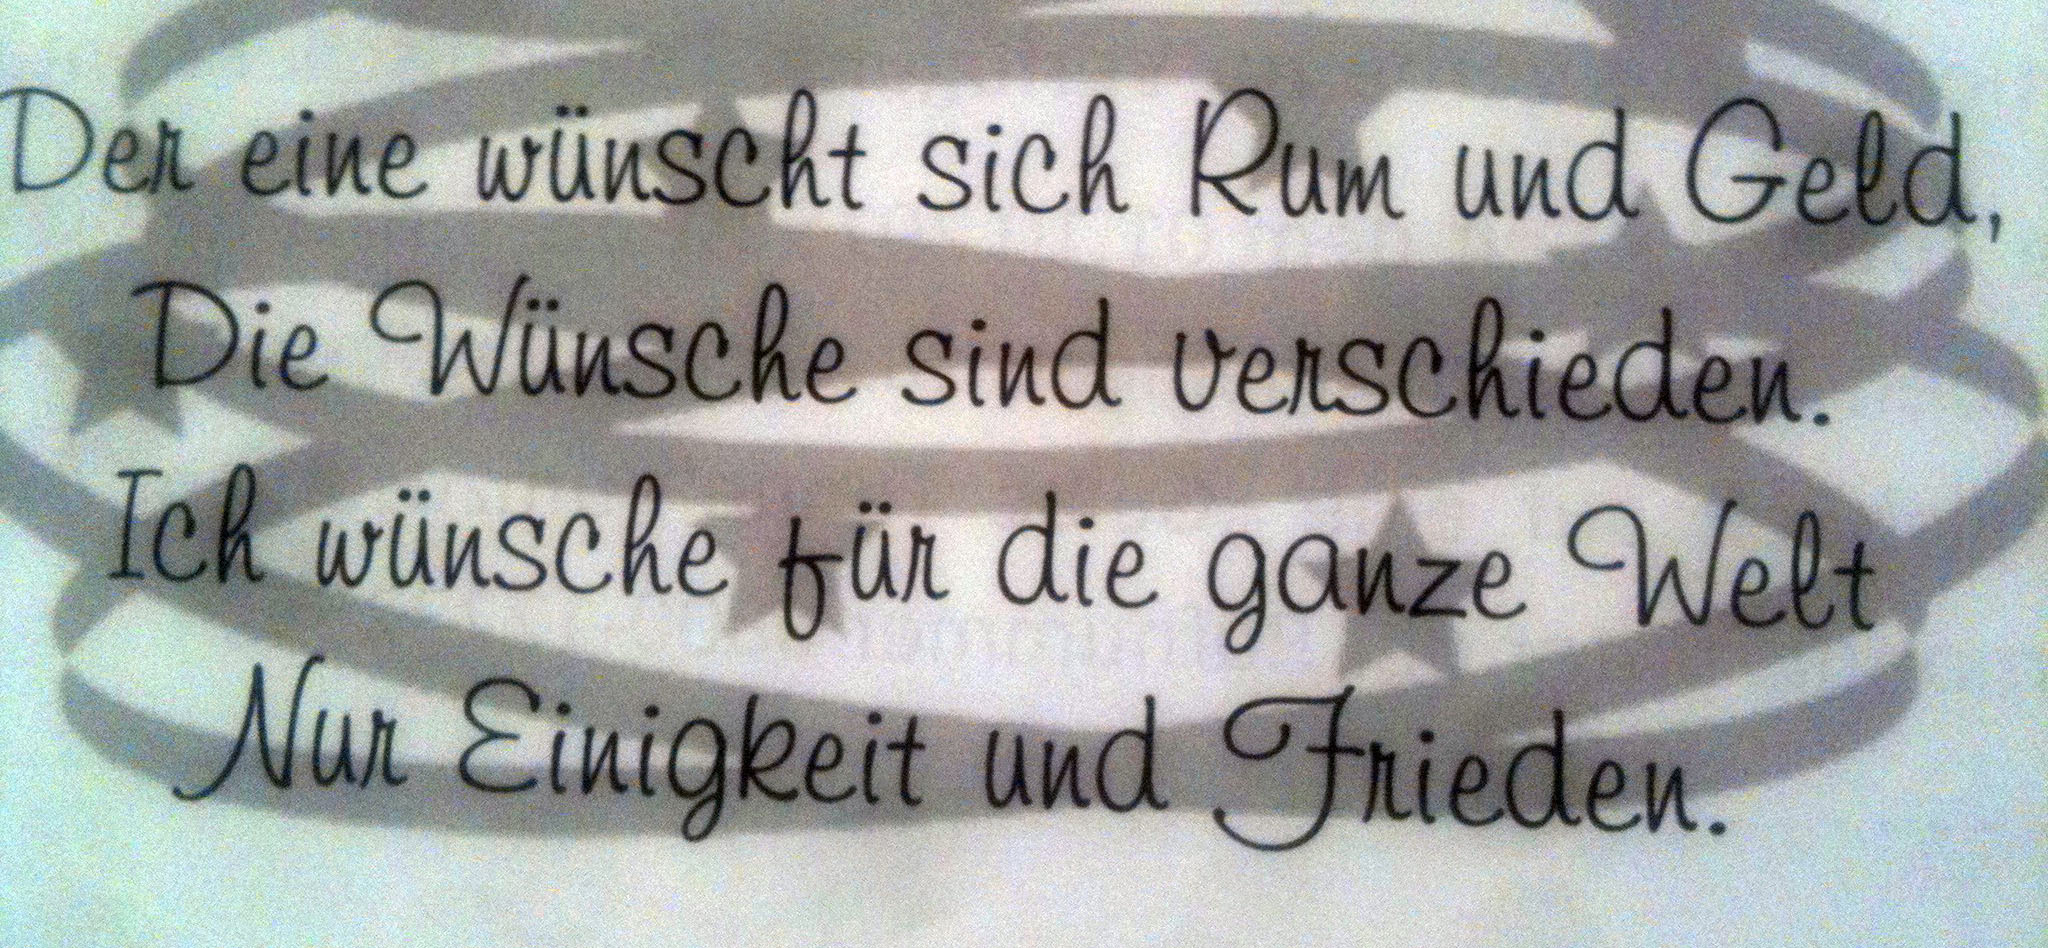 Der eine wünscht sich Rum und Geld,
Die Wünsche sind verschieden.
Ich wünsche für die ganze Welt
Nur Einigkeit und Frieden.